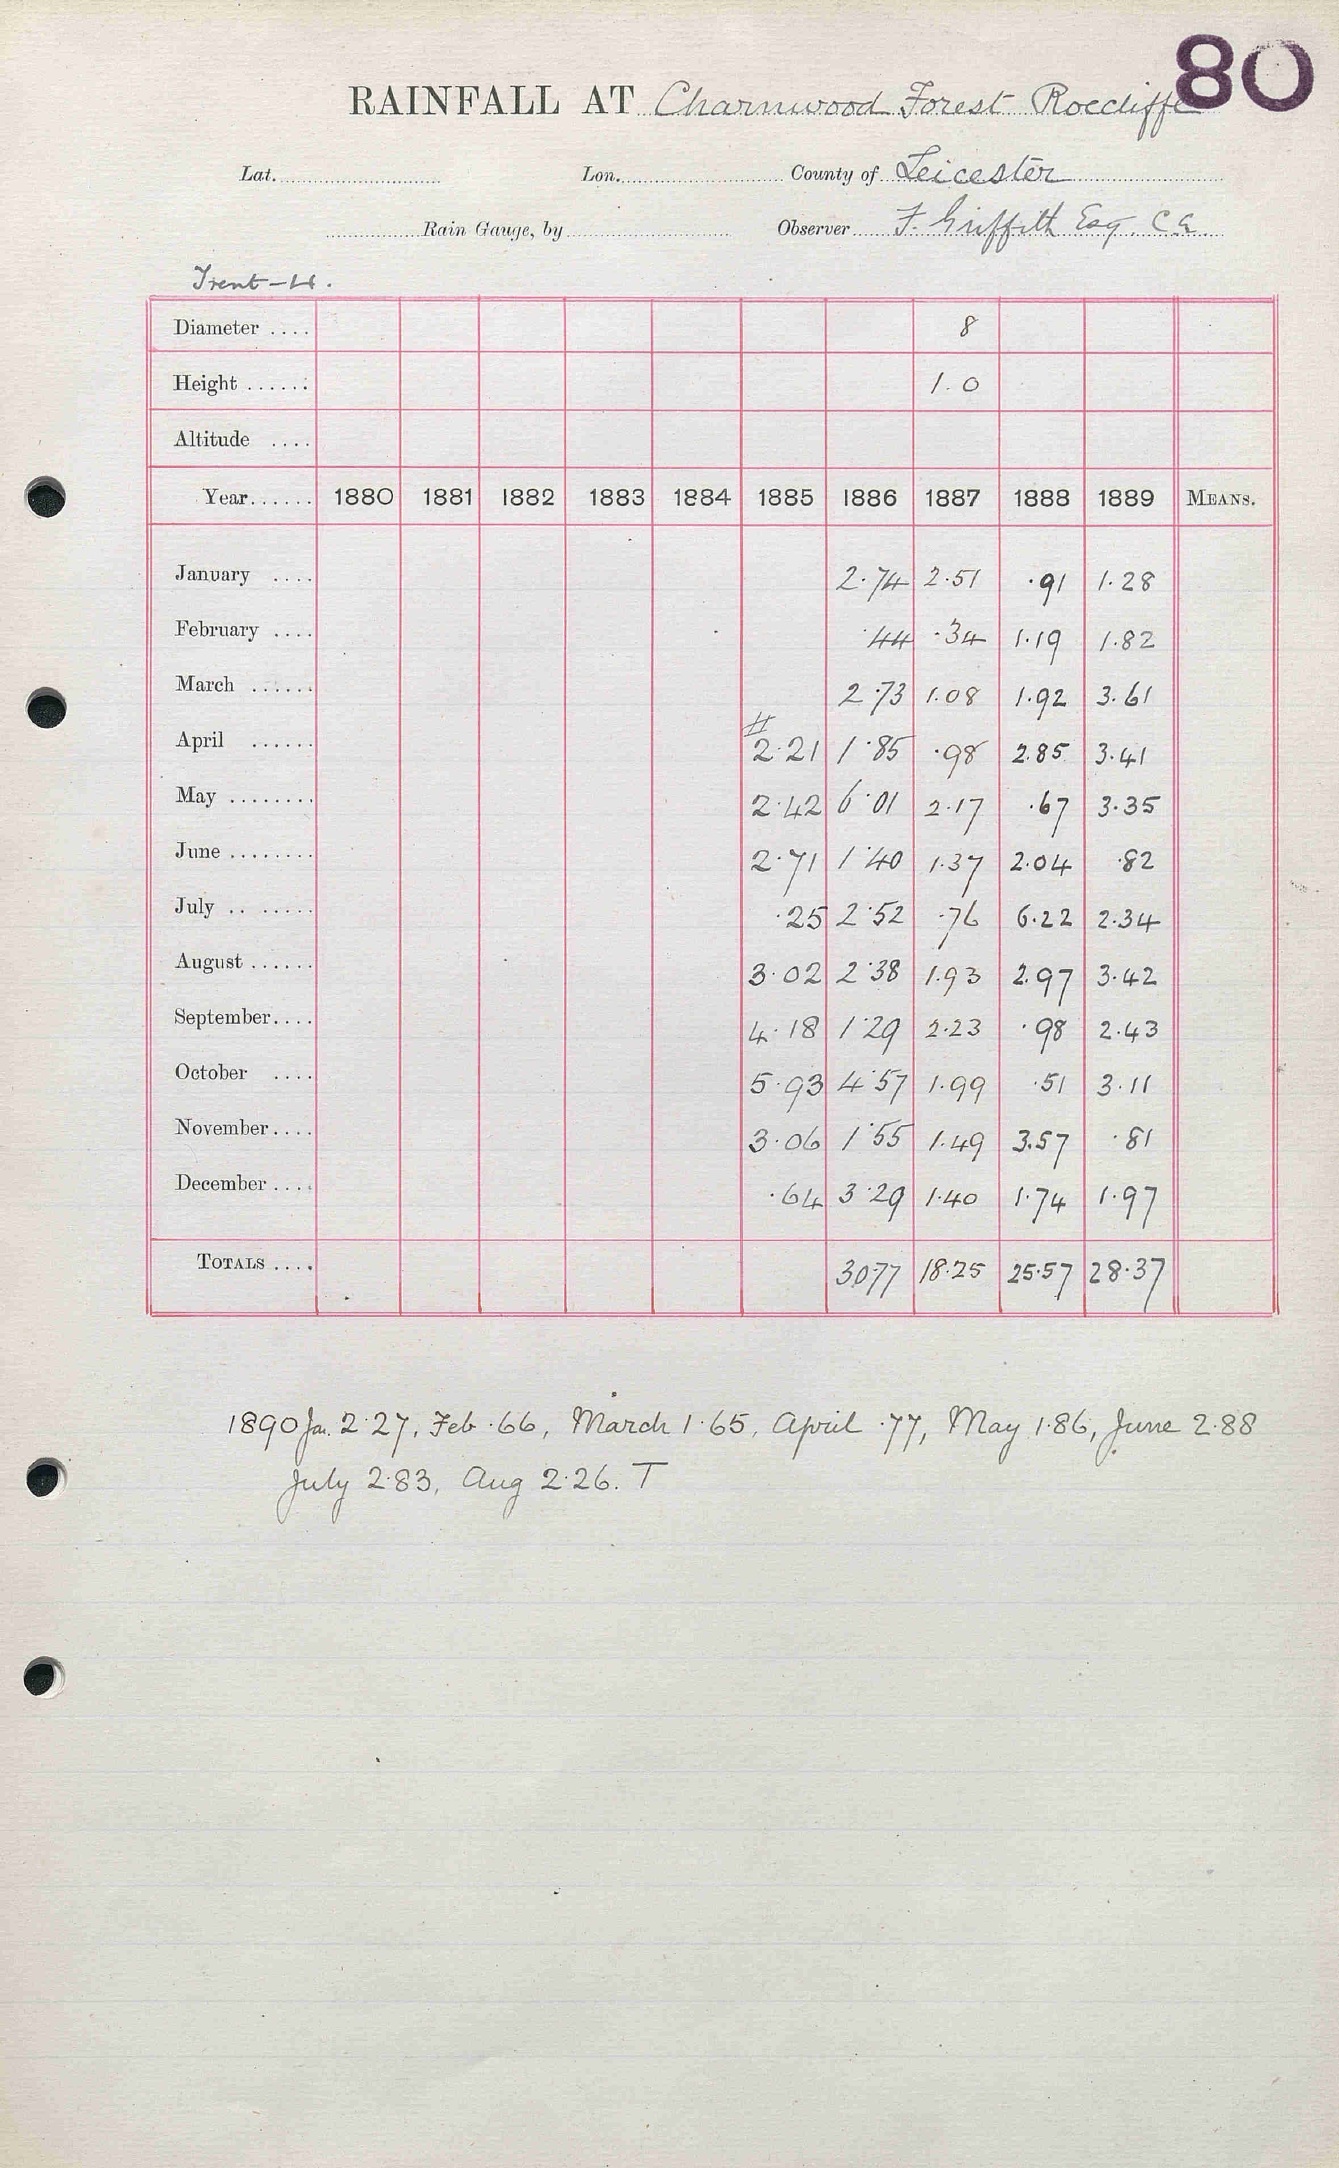 80
RAINFALL AT Charnwood Forest Roecliffe
Lat. Lon. County of Leicester
Rain Gauge, by Observer F. Griffith Esq. C.E.
Trent-4.
Diameter .... 8
Height ...... 1.0
Altitude ....
Year...... 1880 1881 1882 1883 1884 1885 1886 1887 1888 1889 MEANS.
January .... 2.74 2.51 .91 1.28
February .... .44 .34 1.19 1.82
March ...... 2.73 1.08 1.92 3.61
April ...... # 2.21 1.85 .98 2.85 3.41
May ........ 2.42 6.01 2.17 .67 3.35
June ........ 2.71 1.40 1.37 2.04 .82
July .. ..... .25 2.52 .76 6.22 2.34
August ...... 3.02 2.38 1.93 2.97 3.42
September.... 4.18 1.29 2.23 .98 2.43
October .... 5.93 4.57 1.99 .51 3.11
November.... 3.06 1.55 1.49 3.57 .81
December .... .64 3.29 1.40 1.74 1.97
TOTALS .... 30.77 18.25 25.57 28.37
1890 Jan. 2.27, Feb .66, March 1.65, April .77, May 1.86, June 2.88
July 2.83, Aug 2.26. T